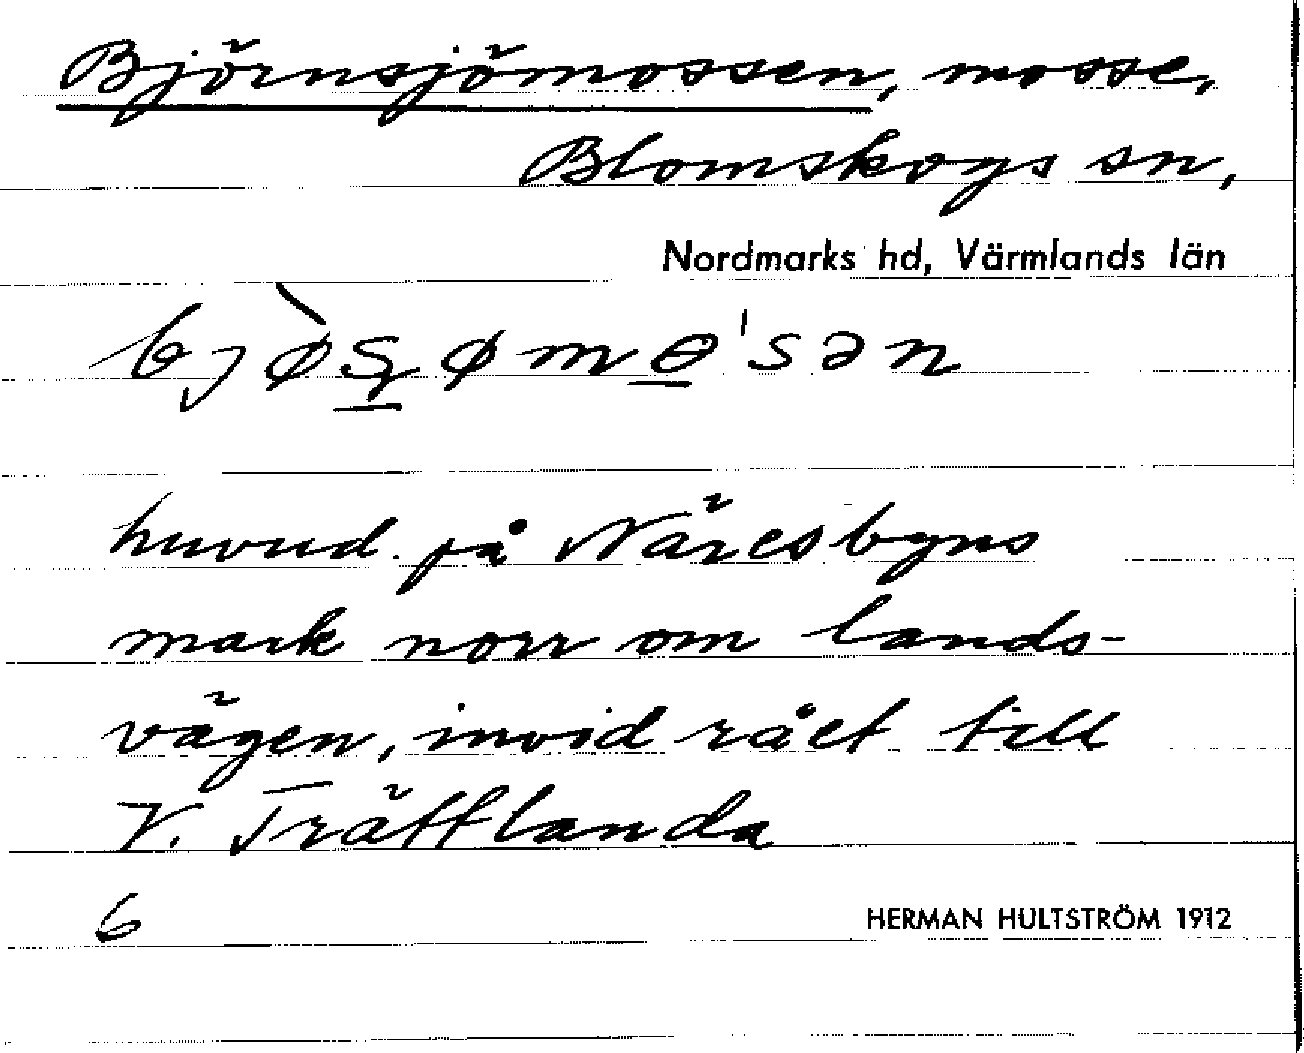 Björnsjömossen, mosse,
Blomskogs sn,
Nordmarks hd, Värmlands län
huvud. på Näresbyns
mark norr om lands-
vägen, invid rået till
V. Träfflanda
6
HERMAN HULTSTRÖM 1912